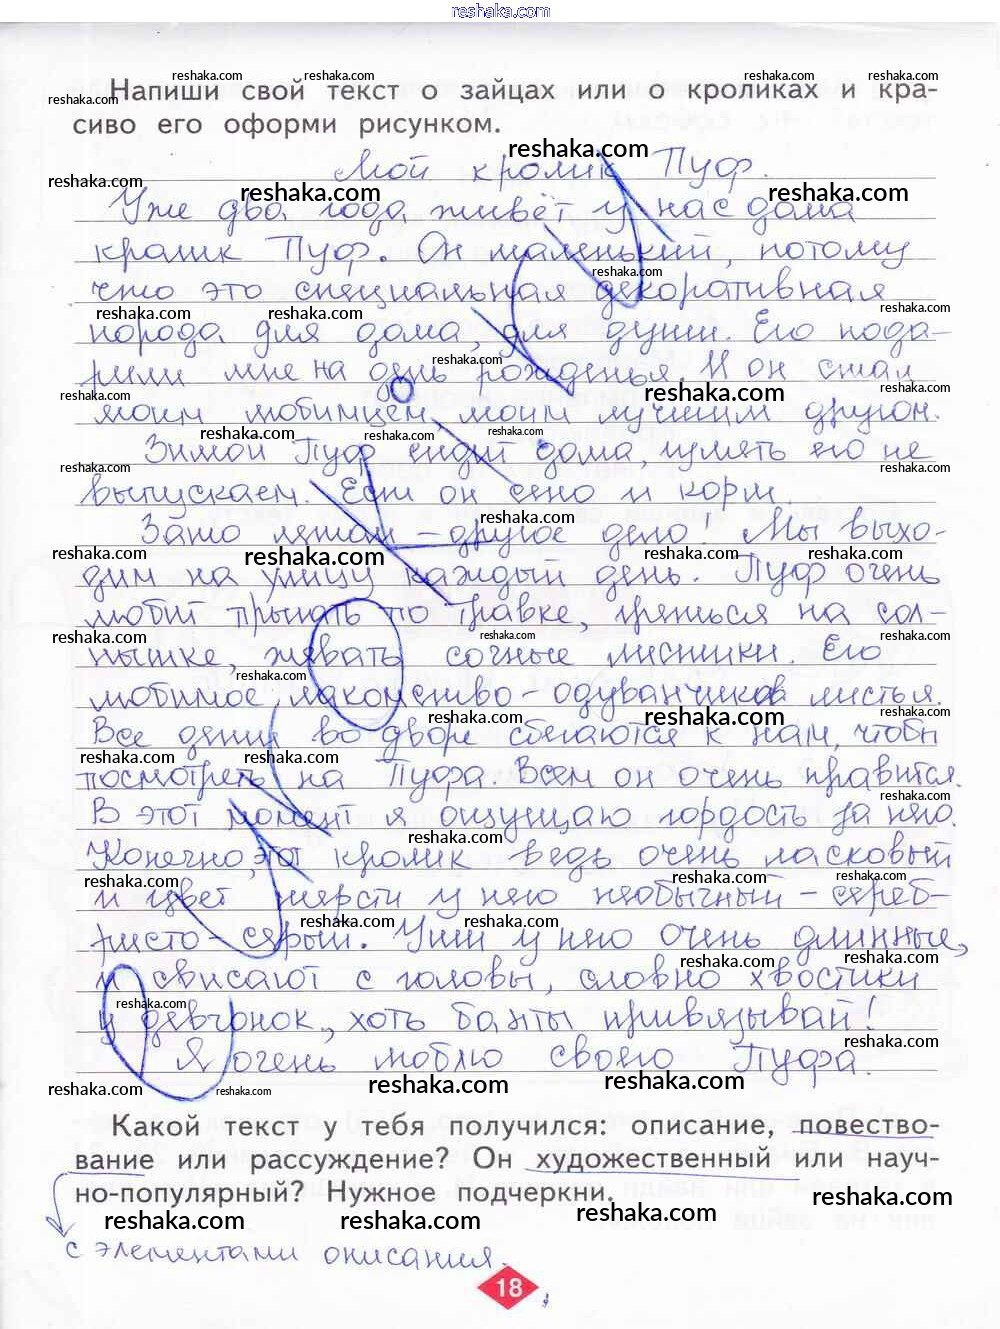 reshaka.com
Напиши свой текст о зайцах или о кроликах и кра-
сиво его оформи рисунком.
Мой кролик Пуф.
Уже два года живёт у нас дома
кролик Пуф. Он маленький, потому
что это специальная декоративная
порода для дома, для души. Его пода-
рили мне на день рожденья. И он стал
моим любимцем, моим лучшим другом.
Зимой Пуф сидит дома, гулять его не
выпускаем. Ест он сено и корм.
Зато летом - другое дело! Мы выхо-
дим на улицу каждый день. Пуф очень
любит прыгать по травке, греться на сол-
нышке, жевать сочные листики. Его
любимое лакомство - одуванчиков листья.
Все дети во дворе сбегаются к нам, чтобы
посмотреть на Пуфа. Всем он очень нравится.
В этот момент я ощущаю гордость за него.
Конечно, этот кролик ведь очень ласковый
и цвет шерсти у него необычный - сереб-
ристо-серый. Уши у него очень длинные,
и свисают с головы, словно хвостики
у девчонок, хоть банты привязывай!
Я очень люблю своего Пуфа.
Какой текст у тебя получился: описание, повество-
вание или рассуждение? Он художественный или науч-
но-популярный? Нужное подчеркни.
с элементами описания.
18